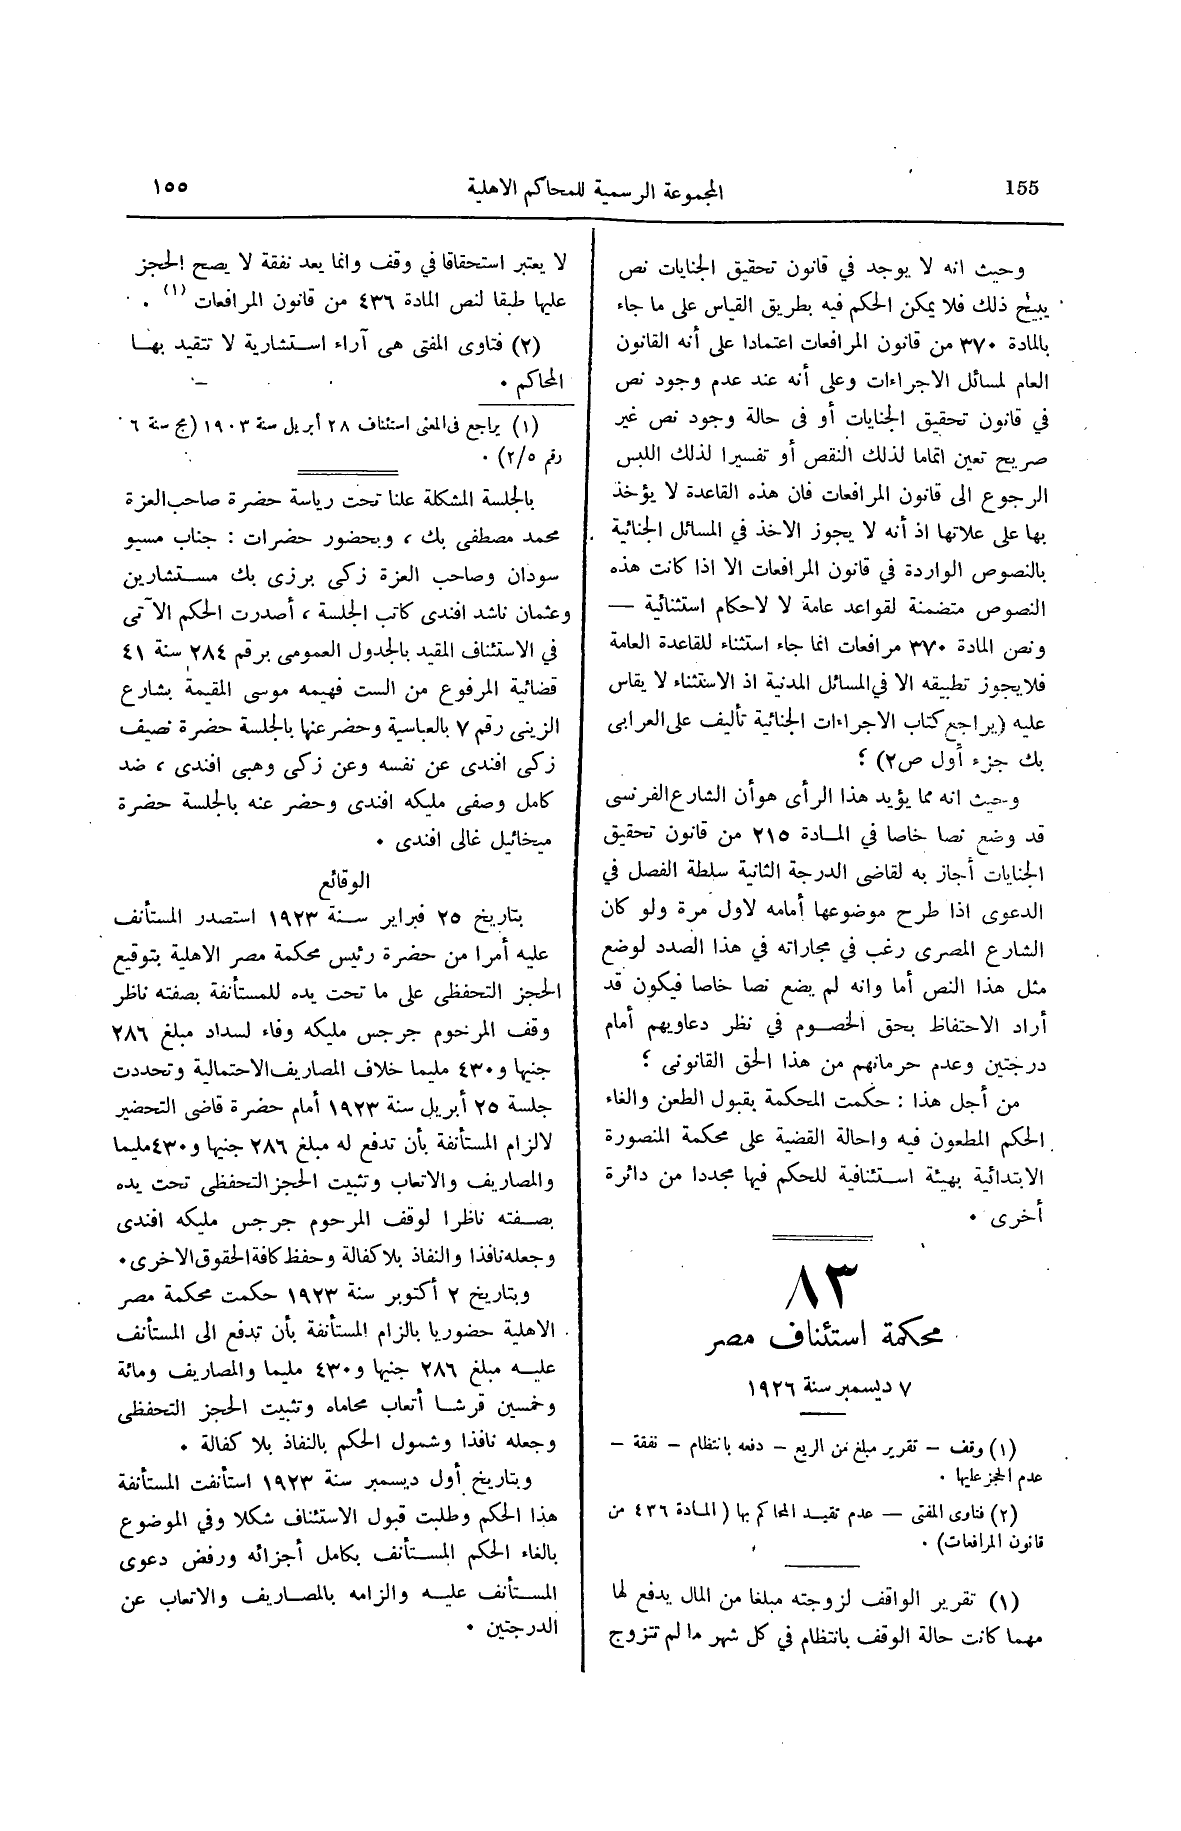 155 المجموعة الرسمية للمحاكم الاهلية ١٥٥
وحيث انه لا يوجد في قانون تحقيق الجنايات نص
يبيح ذلك فلا يمكن الحكم فيه بطريق القياس على ما جاء
بالمادة ٣٧٠ من قانون المرافعات اعتمادا على أنه القانون
العام لمسائل الاجراءات وعلى أنه عند عدم وجود نص
في قانون تحقيق الجنايات أو فى حالة وجود نص غير
صريح تعين اتماما لذلك النقص أو تفسيرا لذلك اللبس
الرجوع الى قانون المرافعات فان هذه القاعدة لا يؤخذ
بها على علاتها اذ أنه لا يجوز الاخذ في المسائل الجنائية
بالنصوص الواردة في قانون المرافعات الا اذا كانت هذه
النصوص متضمنة لقواعد عامة لا لاحكام استثنائية —
ونص المادة ٣٧٠ مرافعات انما جاء استثناء للقاعدة العامة
فلا يجوز تطبيقه الا في المسائل المدنية اذ الاستثناء لا يقاس
عليه (يراجع كتاب الاجراءات الجنائية تأليف على العرابى
بك جزء أول ص٢) ؛
وحيث انه مما يؤيد هذا الرأى هو أن الشارع الفرنسى
قد وضع نصا خاصا في المادة ٢١٥ من قانون تحقيق
الجنايات أجاز به لقاضى الدرجة الثانية سلطة الفصل في
الدعوى اذا طرح موضوعها أمامه لاول مرة ولو كان
الشارع المصرى رغب في مجاراته في هذا الصدد لوضع
مثل هذا النص أما وانه لم يضع نصا خاصا فيكون قد
أراد الاحتفاظ بحق الخصوم في نظر دعاويهم أمام
درجتين وعدم حرمانهم من هذا الحق القانونى ؛
من أجل هذا : حكمت المحكمة بقبول الطعن والغاء
الحكم المطعون فيه واحالة القضية على محكمة المنصورة
الابتدائية بهيئة استئنافية للحكم فيها مجددا من دائرة
أخرى .
٨٣
محكمة استئناف مصر
٧ ديسمبر سنة ١٩٢٦
(١) وقف – تقرير مبلغ من الريع – دفعه بانتظام – نفقة –
عدم الحجز عليها .
(٢) فتاوى المفتى – عدم تقيد المحاكم بها (المادة ٤٣٦ من
قانون المرافعات) .
(١) تقرير الواقف لزوجته مبلغا من المال يدفع لها
مهما كانت حالة الوقف بانتظام في كل شهر ما لم تتزوج
لا يعتبر استحقاقا في وقف وانما يعد نفقة لا يصح الحجز
عليها طبقا لنص المادة ٤٣٦ من قانون المرافعات (١) .
(٢) فتاوى المفتى هى آراء استشارية لا تتقيد بها
المحاكم .
(١) يراجع فى المعنى استئناف ٢٨ أبريل سنة ١٩٠٣ (مج سنة ٦
رقم ٢/٥) .
بالجلسة المشكلة علنا تحت رياسة حضرة صاحب العزة
محمد مصطفى بك ، وبحضور حضرات : جناب مسيو
سودان وصاحب العزة زكى برزى بك مستشارين
وعثمان ناشد افندى كاتب الجلسة ، أصدرت الحكم الآتى
في الاستئناف المقيد بالجدول العمومى برقم ٢٨٤ سنة ٤١
قضائية المرفوع من الست فهيمه موسى المقيمة بشارع
الزينى رقم ٧ بالعباسية وحضر عنها بالجلسة حضرة نصيف
زكى افندى عن نفسه وعن زكى وهبى افندى ، ضد
كامل وصفى مليكه افندى وحضر عنه بالجلسة حضرة
ميخائيل غالى افندى .
الوقائع
بتاريخ ٢٥ فبراير سنة ١٩٢٣ استصدر المستأنف
عليه أمرا من حضرة رئيس محكمة مصر الاهلية بتوقيع
الحجز التحفظى على ما تحت يده للمستأنفة بصفته ناظر
وقف المرحوم جرجس مليكه وفاء لسداد مبلغ ٢٨٦
جنيها و٤٣٠ مليما خلاف المصاريف الاحتمالية وتحددت
جلسة ٢٥ أبريل سنة ١٩٢٣ أمام حضرة قاضى التحضير
لالزام المستأنفة بأن تدفع له مبلغ ٢٨٦ جنيها و٤٣٠ مليما
والمصاريف والاتعاب وتثبيت الحجز التحفظى تحت يده
بصفته ناظرا لوقف المرحوم جرجس مليكه افندى
وجعله نافذا والنفاذ بلا كفالة وحفظ كافة الحقوق الاخرى .
وبتاريخ ٢ أكتوبر سنة ١٩٢٣ حكمت محكمة مصر
الاهلية حضوريا بالزام المستأنفة بأن تدفع الى المستأنف
عليه مبلغ ٢٨٦ جنيها و٤٣٠ مليما والمصاريف ومائة
وخمسين قرشا أتعاب محاماه وتثبيت الحجز التحفظى
وجعله نافذا وشمول الحكم بالنفاذ بلا كفالة .
وبتاريخ أول ديسمبر سنة ١٩٢٣ استأنفت المستأنفة
هذا الحكم وطلبت قبول الاستئناف شكلا وفي الموضوع
بالغاء الحكم المستأنف بكامل أجزائه ورفض دعوى
المستأنف عليه والزامه بالمصاريف والاتعاب عن
الدرجتين .